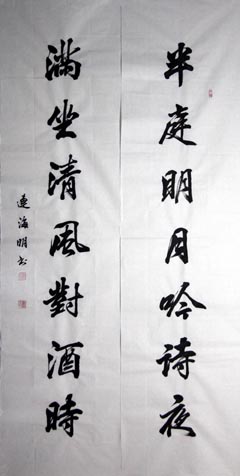 半庭明月吟诗夜
满坐清风對酒時
連海明书